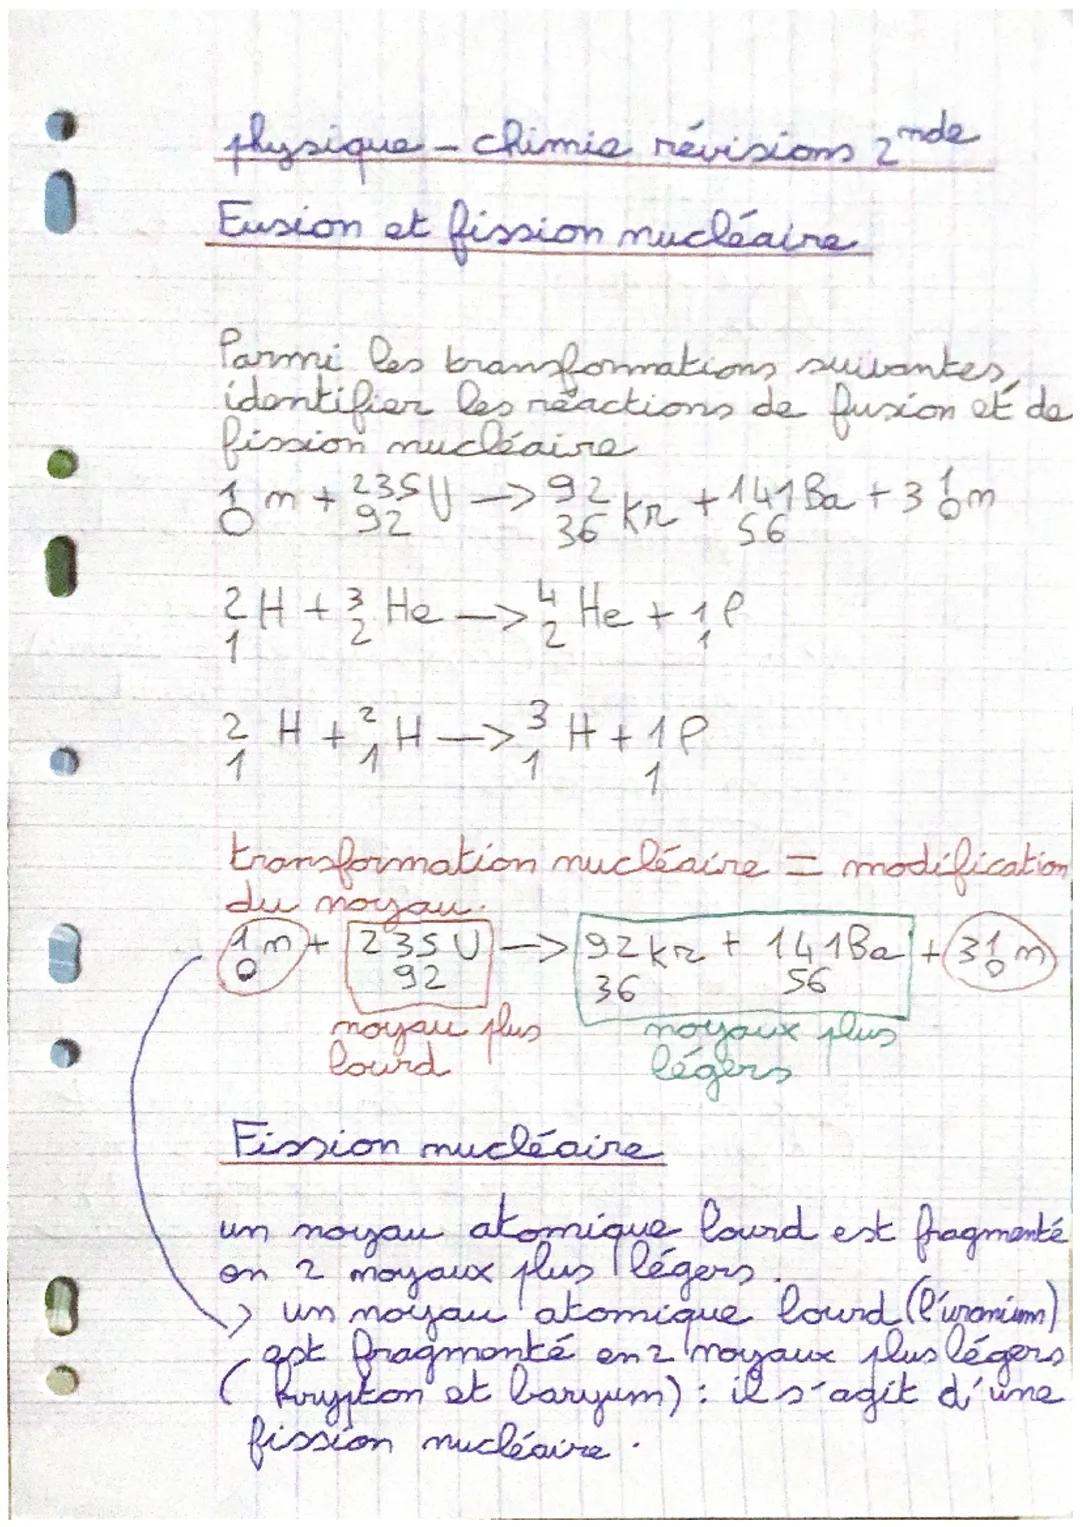 physique - chimie révisions 2nde
Fusion et fission nucléaire
Parmi les transformations suivantes,
identifier les réactions de fusion et de
fission nucléaire
¹₀n + ²³⁵₉₂U —> ⁹²₃₆Kr + ¹⁴¹₅₆Ba + 3 ¹₀n
²₁H + ³₂He —> ⁴₂He + ¹₁p
²₁H + ²₁H —> ³₁H + ¹₁p
transformation nucléaire = modification
du noyau.
¹₀n + ²³⁵₉₂U —> ⁹²₃₆kr + ¹⁴¹₅₆Ba + 3¹₀n
noyau plus lourd
noyaux plus légers
Fission nucléaire
un noyau atomique lourd est fragmenté
en 2 noyaux plus légers.
> un noyau atomique lourd (l'uranium)
est fragmenté en 2 noyaux plus légers
(krypton et baryum) : il s'agit d'une
fission nucléaire.